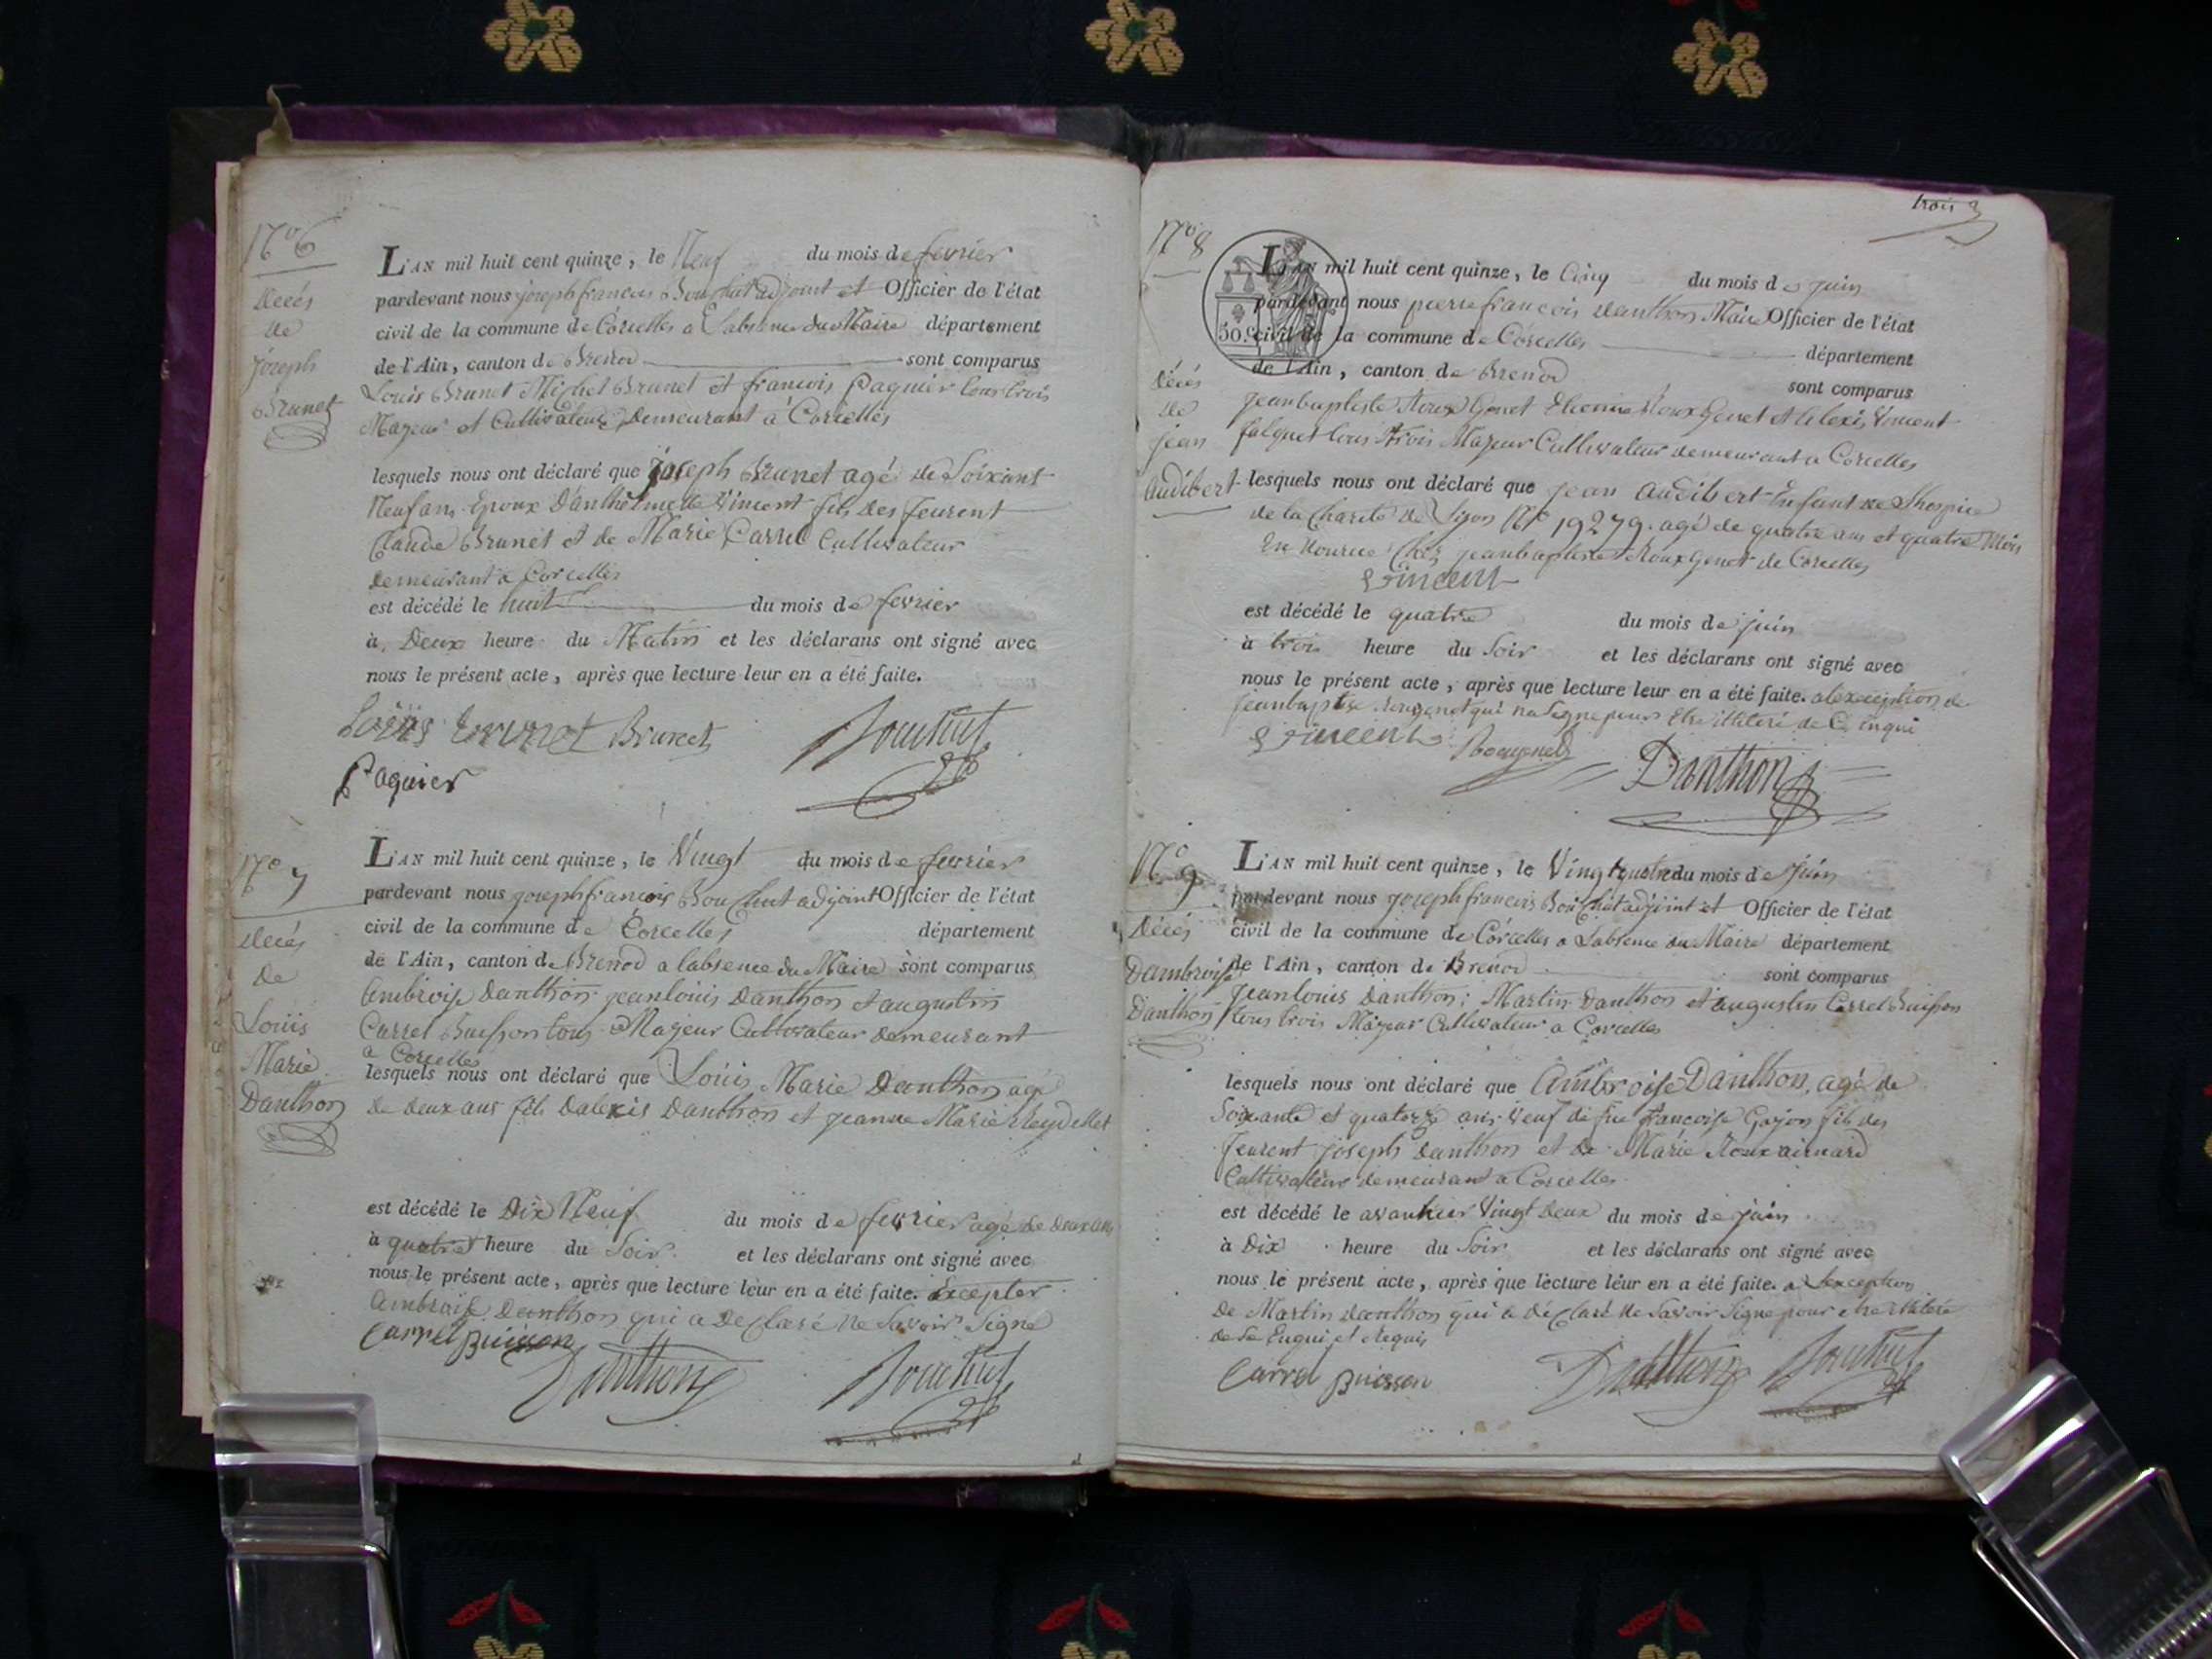 N.o 6
Decés
de
joseph
Brunet
L'AN mil huit cent quinze, le Neuf du mois de fevrier
pardevant nous joseph francois Bouchut adjoint et Officier de l'état
civil de la commune de Corcelles a Labsence du Maire département
de l'Ain, canton de Brenod sont comparus
Louis Brunet Michel Brunet et francois Paquier tous trois
Majeur et Cultivateur Demeurant à Corcelles
lesquels nous ont déclaré que joseph Brunet agé de Soixant
Neuf ans Epoux D'anthelmette Vincent fils des feurent
Claude Brunet et de Marie Carrel Cultivateur
demeurant a Corcelles
est décédé le huit du mois de fevrier
à Deux heure du Matin et les déclarans ont signé avec
nous le présent acte, après que lecture leur en a été faite.
Loüis Brunet Brunet Bouchut
Paquier
N.o 7
Decés
de
Loüis
Marie
Danthon
L'AN mil huit cent quinze, le Vingt du mois de fevrier
pardevant nous joseph francois Bouchut adjoint Officier de l'état
civil de la commune de Corcelles département
de l'Ain, canton de Brenod a labsence du Maire sont comparus
Ambroise Danthon jean louis Danthon et augustin
Carrel Buisson tous Majeur Cultivateur demeurant
a Corcelles
lesquels nous ont déclaré que Loüis Marie Danthon agé
de deux ans fils Dalexis Danthon et jeanne Marie Reydellet
est décédé le Dix Neuf du mois de fevrier agé de deux ans
à quatre heure du Soir et les déclarans ont signé avec
nous le présent acte, après que lecture leur en a été faite. Excepter
Ambroise Danthon qui a declaré ne Savoir Signe
Carrel Buisson Danthon Bouchut
trois 3
N.o 8
Décés
de
jean
Audibert
50 C
L'AN mil huit cent quinze, le Cinq du mois de juin
pardevant nous pierre francois Danthon Maire Officier de l'état
civil de la commune de Corcelles département
de l'Ain, canton de Brenod sont comparus
jean baptiste Roux Genet Etienne Roux Genet et Alexis Vincent
falquet tous trois Majeur Cultivateur demeurant a Corcelles
lesquels nous ont déclaré que jean Audibert Enfant de Lhospice
de la Charité de Lyon N.o 19279. agé de quatre ans et quatre Mois
En Nourice Chez jean baptiste Roux genet de Corcelles
Vincent
est décédé le quatre du mois de juin
à trois heure du Soir et les déclarans ont signé avec
nous le présent acte, après que lecture leur en a été faite. alexception de
jean baptise rougenet qui na Signe pour Etre illiteré de Ce Enqui
Vincent Rougenet Danthon
N.o 9
Décés
Dambroise
Danthon
L'AN mil huit cent quinze, le Vingt quatre du mois de juin
pardevant nous joseph francois Bouchut adjoint et Officier de l'état
civil de la commune de Corcelles a Labsence du Maire département
de l'Ain, canton de Brenod sont comparus
jean louis Danthon; Martin Danthon et augustin Carrel Buisson
tous trois Majeur Cultivateur a Corcelles
lesquels nous ont déclaré que Ambroise Danthon, agé de
Soixante et quatorze ans veuf de fue francoise Gajon fils des
feurent joseph danthon et de Marie Roux aimard
Cultivateur demeurant a Corcelles
est décédé le avanhier Vingt deux du mois de juin
à Dix heure du Soir et les déclarans ont signé avec
nous le présent acte, après que lecture leur en a été faite. a Lexception
de Martin danthon qui a déclaré Ne Savoir Signe pour etre illiteré
de Se Enqui et Requis
Carrel Buisson Danthon Bouchut